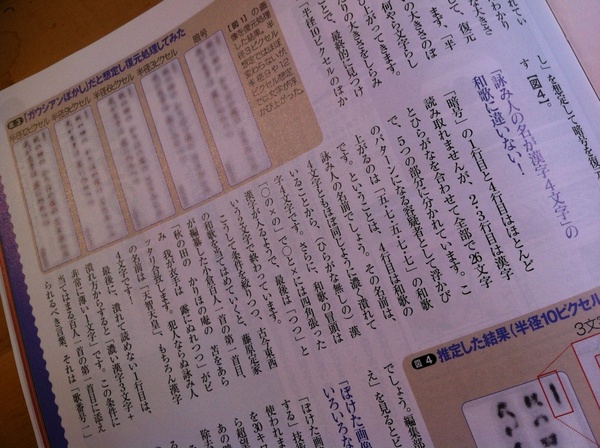 し」を想定して暗号を復元
す【図4】。
「詠み人の名が漢字4文字」の
和歌に違いない!
「暗号」の1行目と4行目はほとんど
読み取れませんが、2、3行目は漢字
とひらがなを合わせて全部で26文字
で、5つの部分に分かれています。こ
のパターンになる容疑者として浮かび
上がるのは「五・七・五・七・七」の和歌
です。ということは、4行目は和歌の
詠み人の名前でしょう。その名前は、
4文字ともほぼ同じように濃く潰れて
いることから、(ひらがな無しの)漢
字4文字です。さらに、和歌の冒頭は
「〇の×の」で〇と×には四角張った
漢字がくるようで、最後は「つつ」と
いう2文字で終わっています。
こうして条件を絞りつつ、古今東西
の和歌を当てはめていくと、藤原定家
が編纂した小倉百人一首の第一首目、
「秋の田の かりほの庵の 苫をあら
み 我が衣手は 露にぬれつつ」がピ
ッタリ合致します。犯人ならぬ詠み人
の名前は「天智天皇」、もちろん漢字
4文字です!
最後に、潰れて読めない1行目は、
潰れ方からすると「濃い漢字3文字+
非常に薄い1文字」です。この条件に
当てはまる百人一首の第一首目に添え
られるべき言葉、それは「歌番号一」
図3 「ガウシアンぼかし」だと想定し復元処理してみた
暗号
半径3ピクセル
半径9ピクセル
半径10ピクセル
半径12ピクセル
【図1】の画
像を復元処理
した結果。半
径3ピクセル
想定ではほぼ
変わらないが、
半径9や12
ピクセル想定
では文字が浮
かび上がった。
図4 推定した結果(半径10ピクセル
3文
でしょう。編集部
え」を見るとピ
「ぼけた画像
いろいろな
「ぼけた画
する」技
使われま
を30キ
ら観望